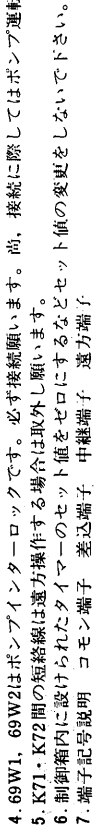 4.69W1, 69W2はポンプインターロックです。必ず接続願います。尚, 接続に際してはポンプ運転
5.K71・K72間の短絡線は遠方操作する場合は取外し願います。
6.制御箱内に設けられたタイマーのセット値をゼロにするなどセット値の変更をしないで下さい。
7.端子記号説明 コモン端子 差込端子 中継端子 遠方端子